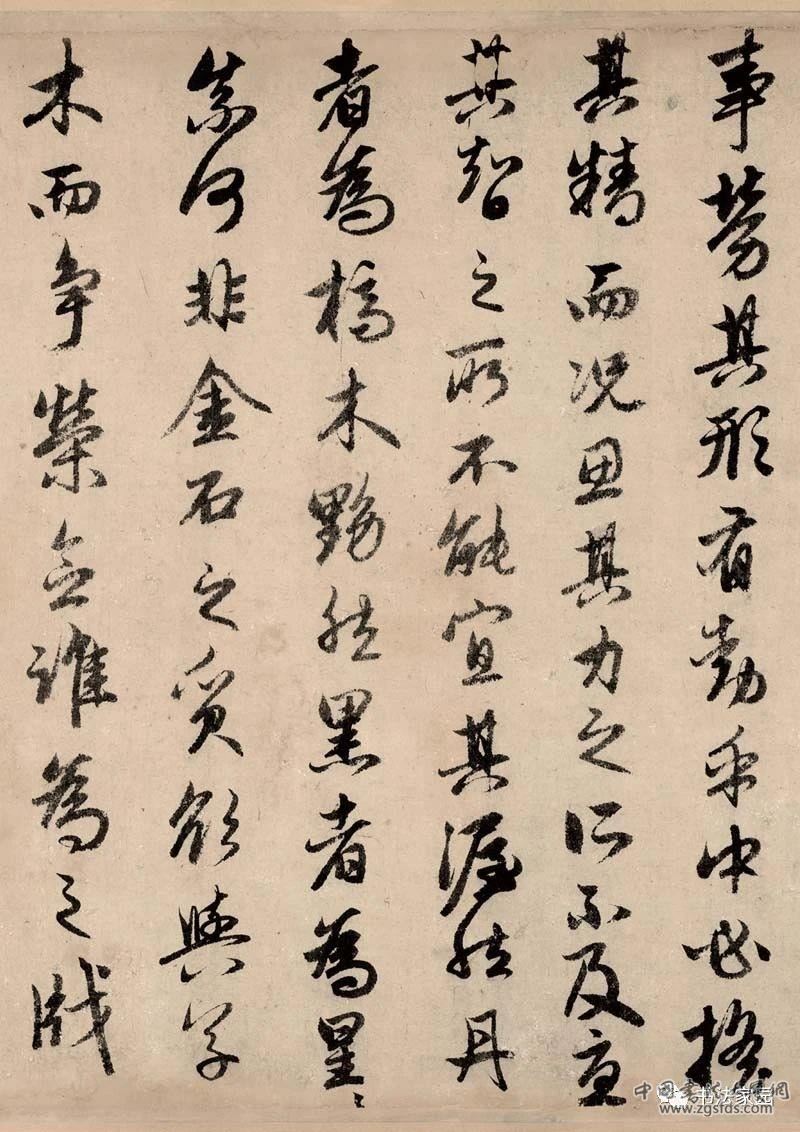 事勞其形有動乎中必搖
其精而況思其力之所不及憂
其智之所不能宜其渥然丹
者為槁木黟然黑者為星〻
奈何非金石之質欲與草
木而争榮念誰為之戕
中國書法網
书法家园
www.zgsfds.com